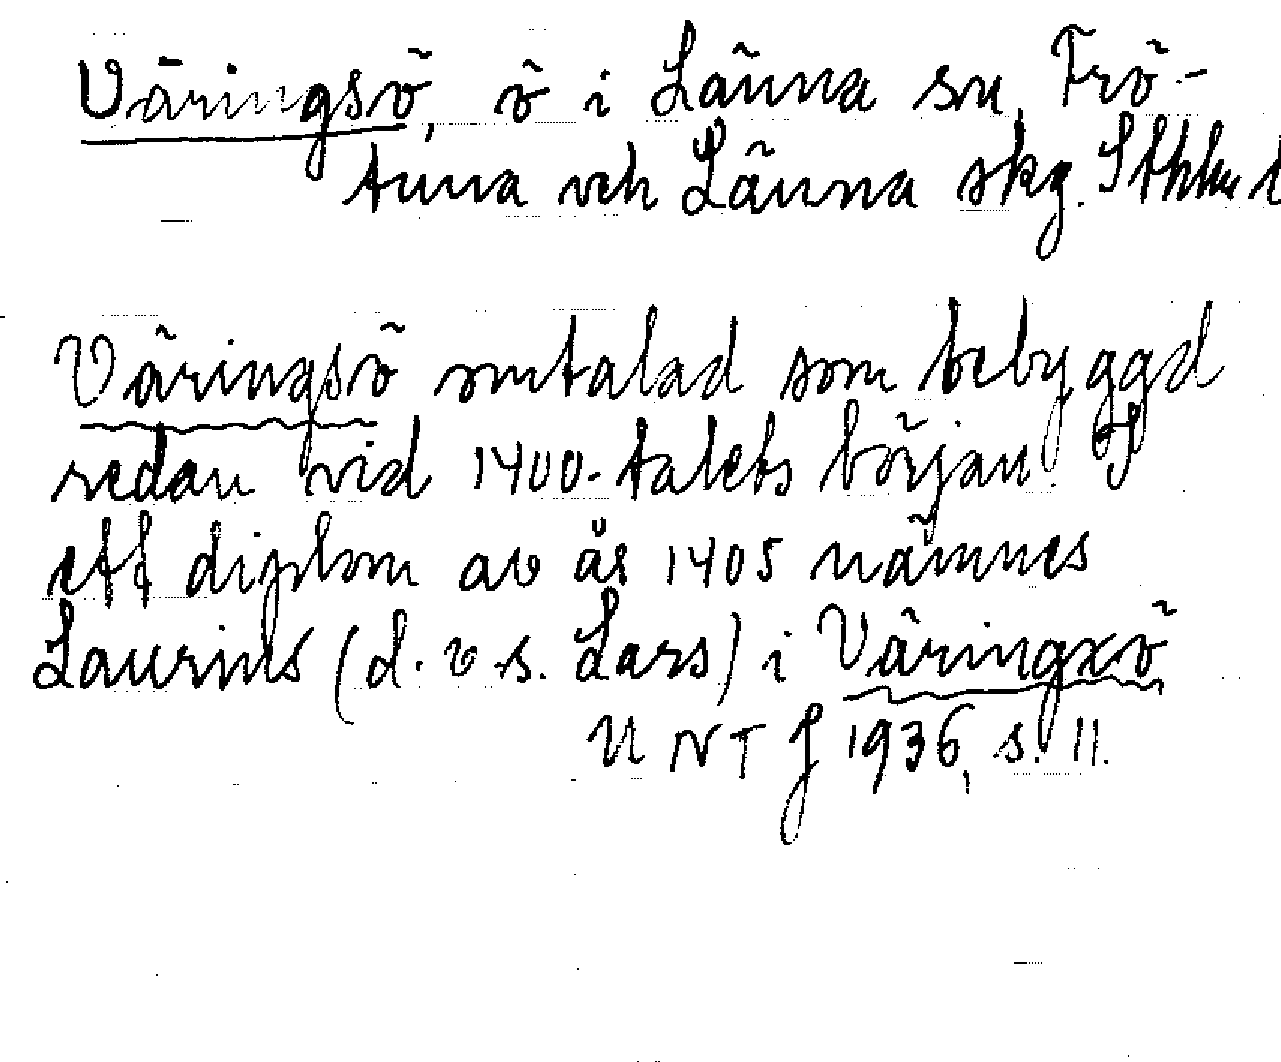 Väringsö, ö i Länna sn, Frö-
tuna och Länna skg. Sthlm l
Väringsö omtalad som bebyggd
redan vid 1400-talets början. I
ett diplom av år 1405 nämnes
Laurins (d. v. s. Lars) i Väringxö
UNT J 1936, s. 11.